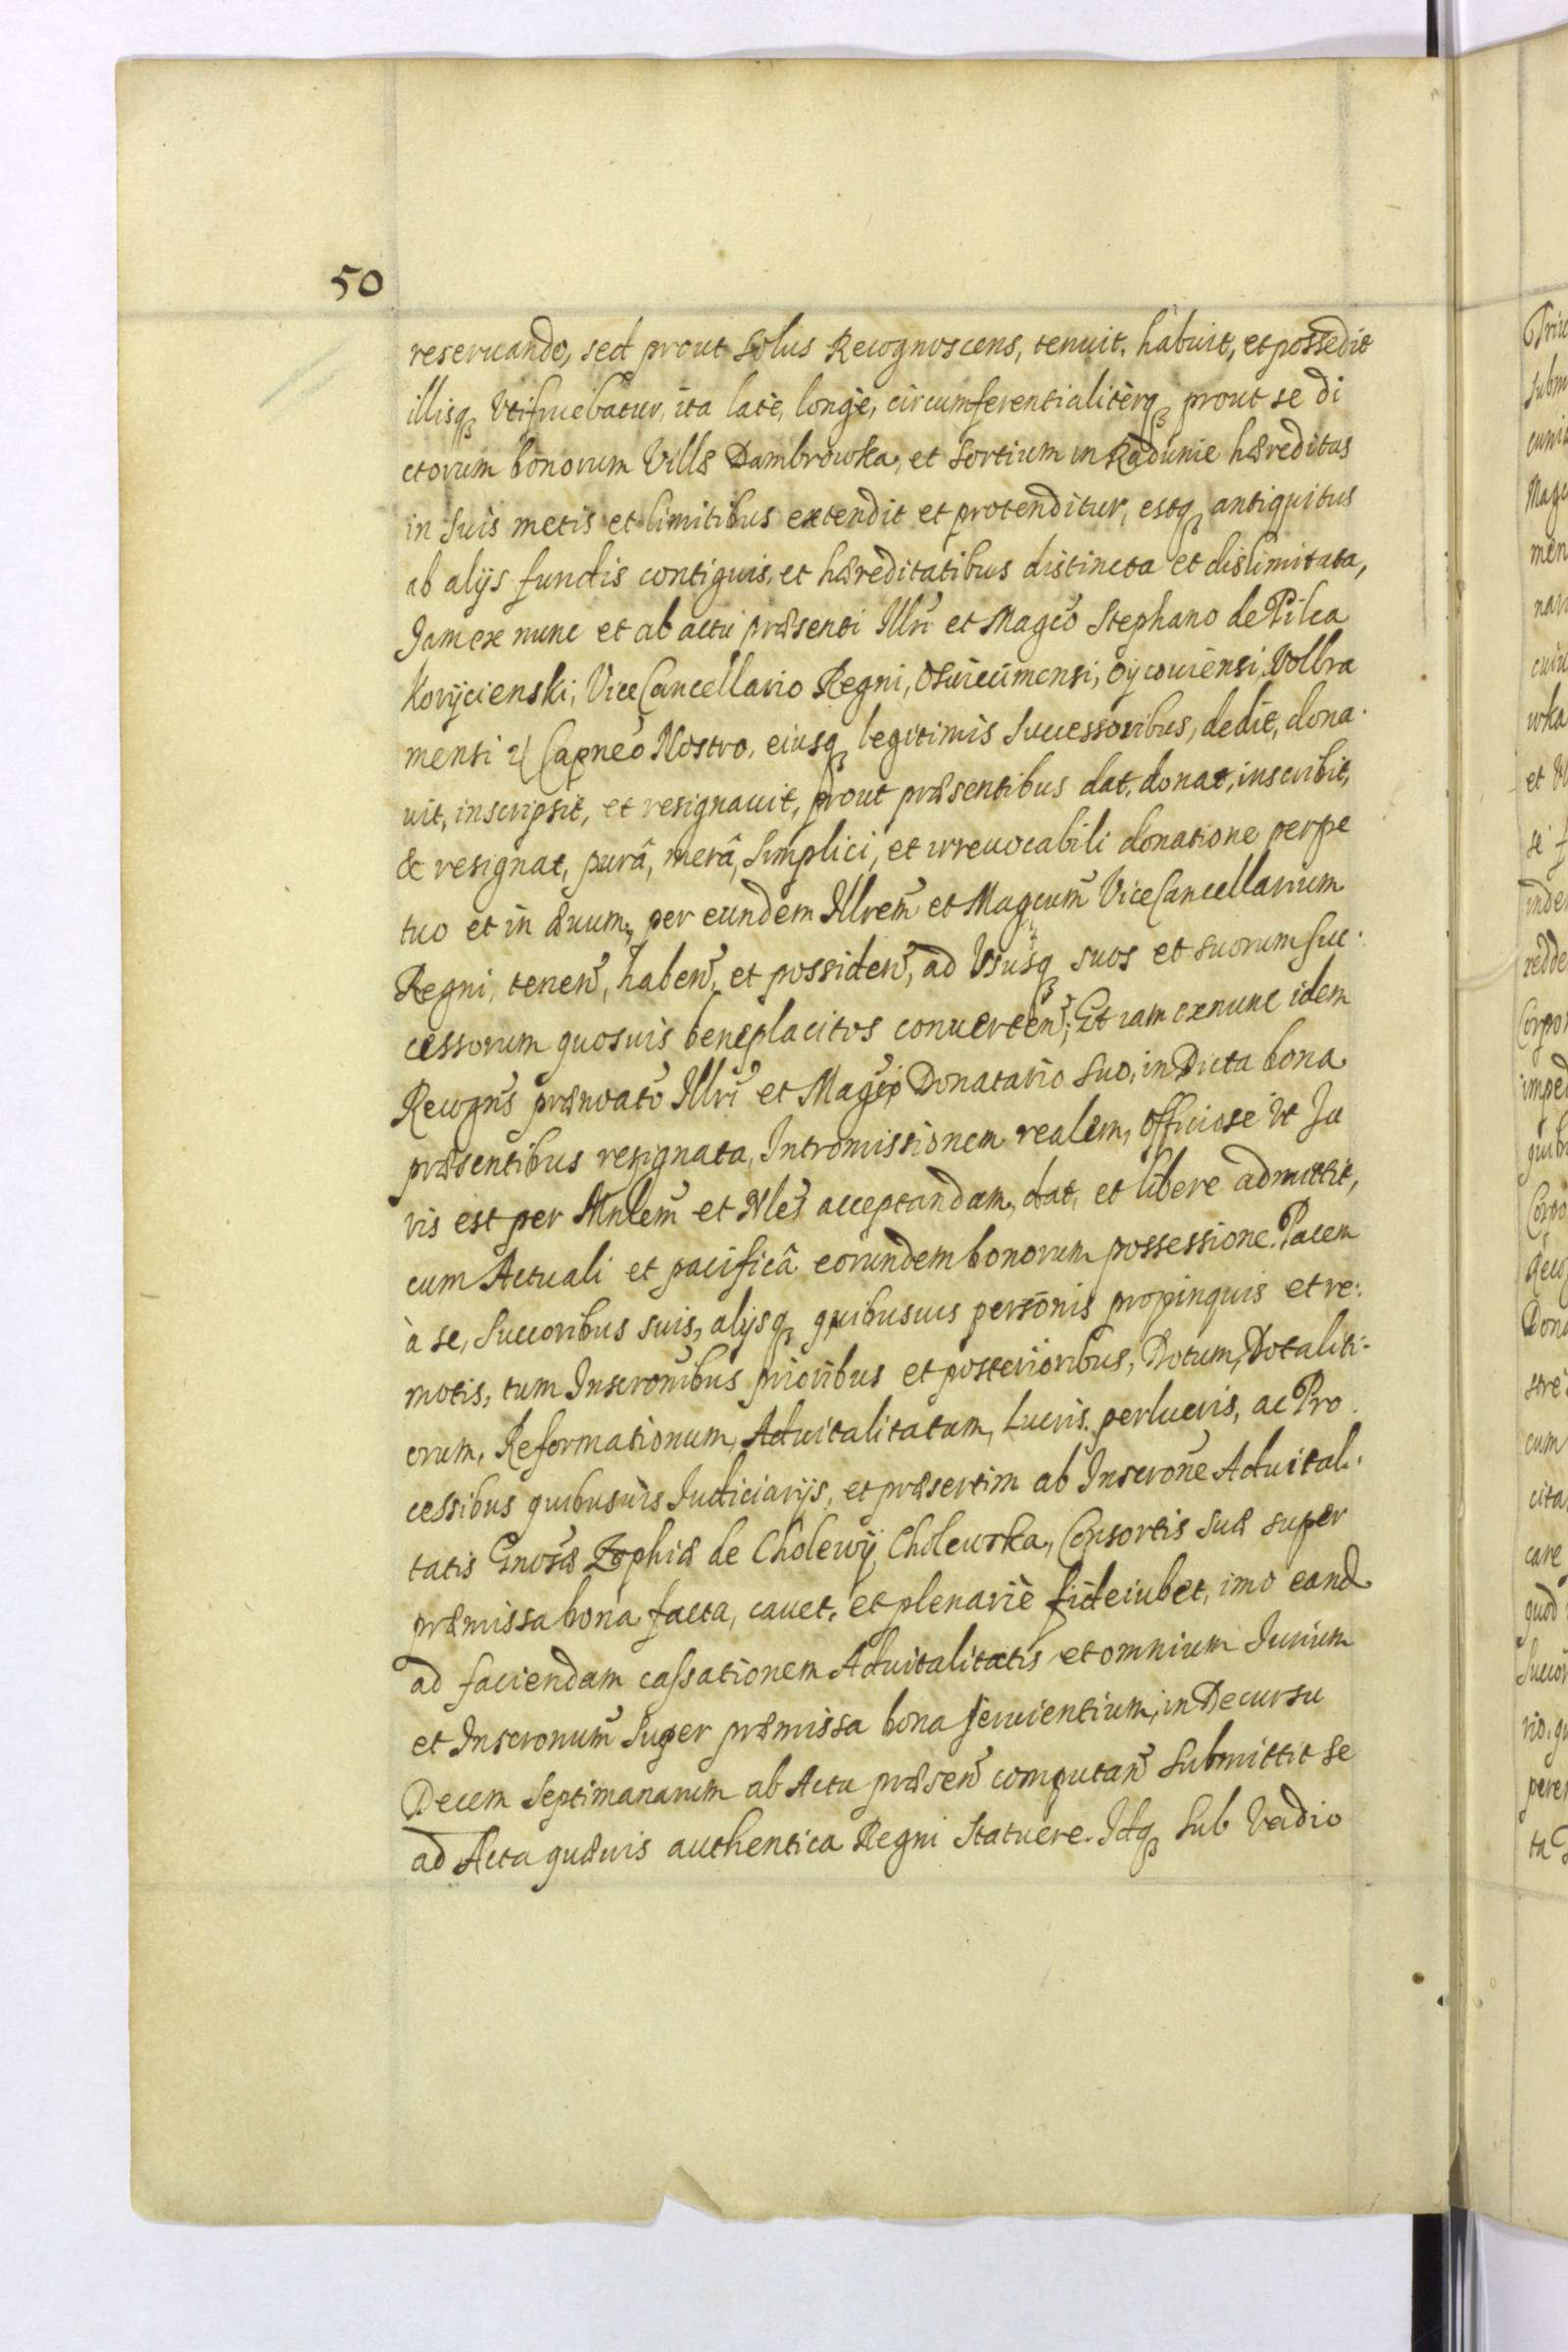 50
reseruando, sed prout solus Recognoscens, tenuit, habuit, et possedit
illisqꝫ Vtifruebatur, ita late, longè, circumferentialiterqꝫ prout se di
ctorum bonorum Villæ Dambrowka, et sortium in Radunie hæreditas
in suis metis et limitibus extendit et protenditur, estqꝫ antiquitus
ab alijs fundis contiguis, et hæreditatibus distincta et dislimitata,
Jam ex nunc et ab actu præsenti Illri et Magco Stephano de Pilca
Korÿcienski, ViceCancellario Regni, Osuiecimensi, Oycouiensi, Wolbra
mensi Capneo Nostro, eiusqꝫ legitimis Successoribus, dedit, dona-
uit, inscripsit, et resignauit, prout præsentibus dat, donat, inscribit,
& resignat, purâ, merâ, simplici, et irreuocabili donatione perpe
tuo et in æuum, per eundem Illrem et Magcum ViceCancellarium
Regni, tenen, haben, et possiden, ad Vsusqꝫ suos et suorum suc-
cessorum quosuis beneplacitos conuerten; Et iam exnunc idem
Recogns prænoato Illri et Magco Donatario suo, in Dicta bona
præsentibus resignata, Intromissionem realem, officiose vt Ju
ris est per Mnlem et Nles acceptandam, dat, et libere admittit,
cum Actuali et pacificâ eorundem bonorum possessione. Pacem
à se, Succoribus suis, alijsqꝫ quibusuis personis propinquis et re-
motis, tum Inscronibus prioribus et posterioribus, Dotum, Dotaliti-
orum, Reformationum, Aduitalitatum, Lucris, perlucris, ac Pro
cessibus quibusuis Judiciarijs, et præsertim ab Inscrone Aduitali-
tatis Gnosæ Zophiæ de Cholewÿ Cholewska, Consortis suæ super
præmissa bona facta, cauet, et plenariè fideiubet, imo eand
ad faciendam cassationem Aduitalitatis et omnium Jurium
et Inscronum super præmissa bona seruientium, in Decursu
Decem Septimanarum ab Actu præsen computan submittit se
ad Acta quæuis authentica Regni Statuere. Idqꝫ sub Vadio